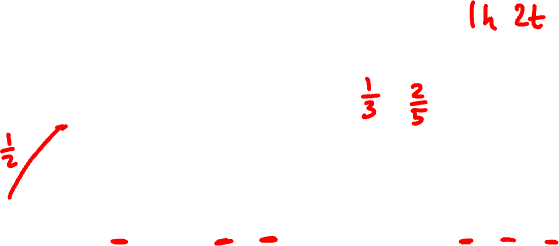 1h 2t
1/3 2/5
1/2